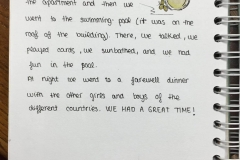 the apartment and then we
went to the swimming-pool (it was on the
roof of the building). There, we talked, we
played cards, we sunbathed, and we had
fun in the pool.
At night we went to a farewell dinner
with the other girls and boys of the
different countries. WE HAD A GREAT TIME!